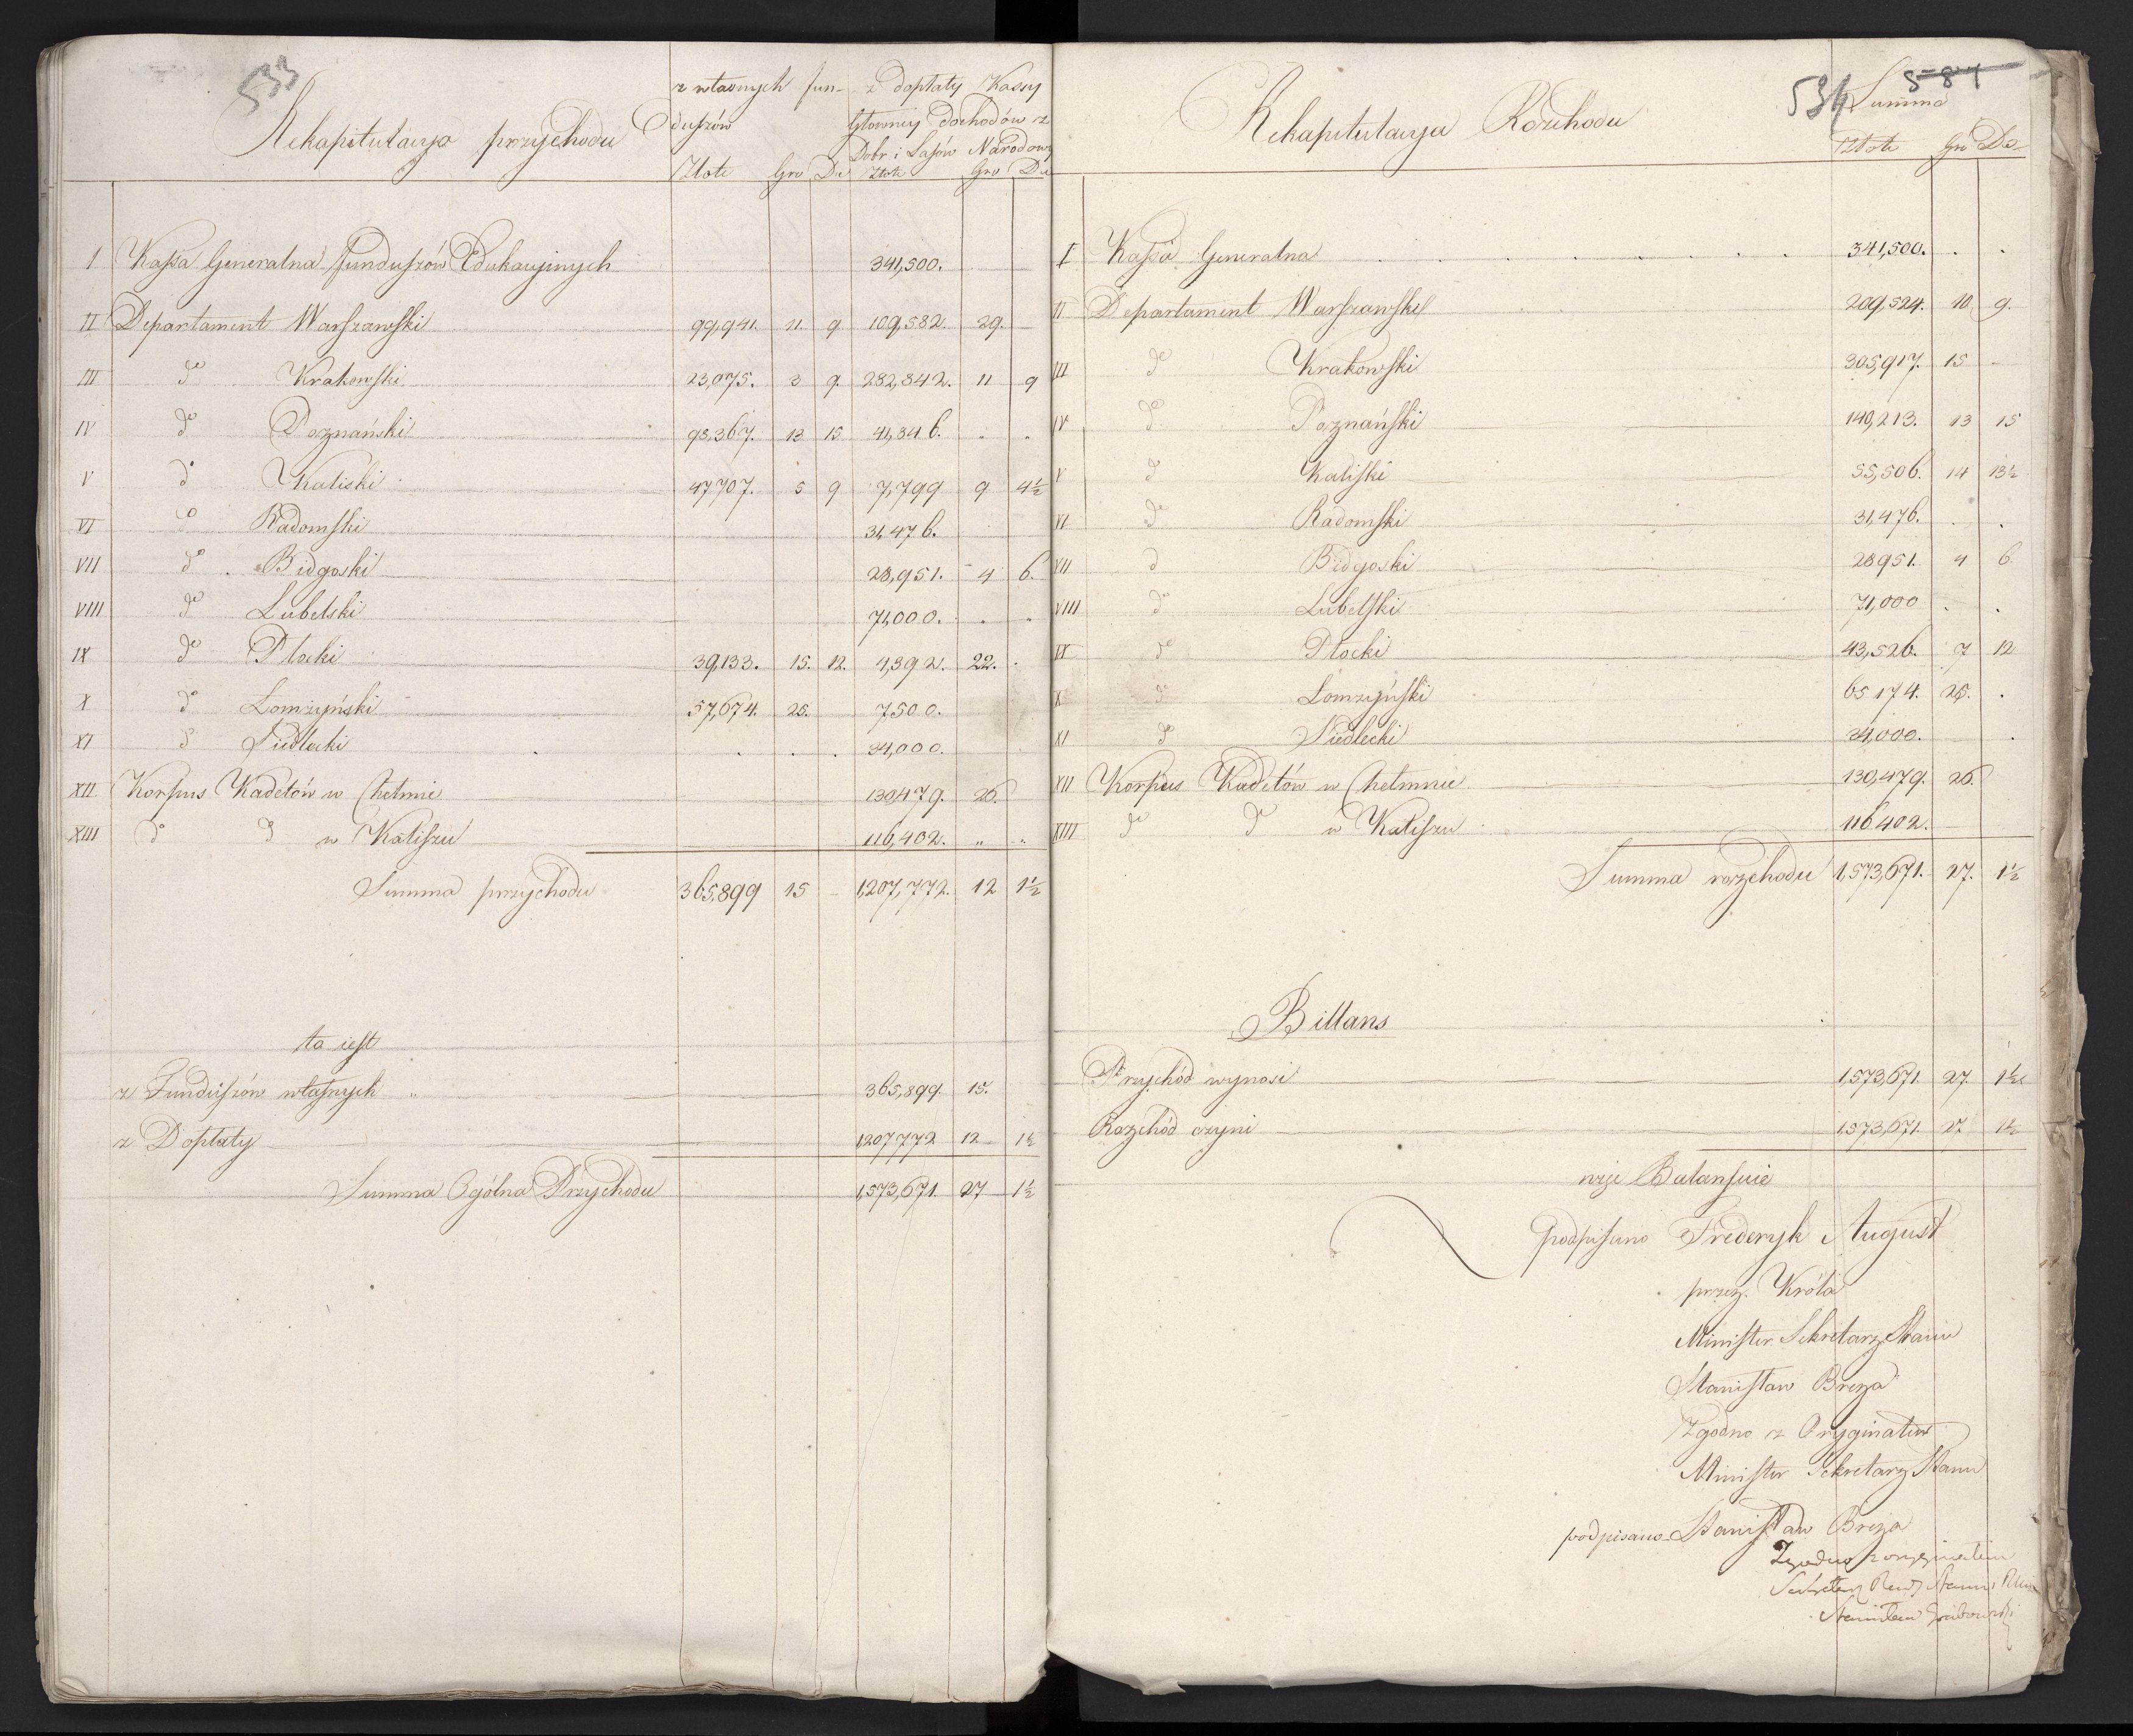 533
Rekapitulacya przychodu
z własnych fun-
duszów
z dopłaty Kassy
Głowney dochodów z
Dobr i Lasów Narodowy
Złote Gro De Złote Gro De
I Kassa Generalna funduszów Edukacyinych 341,500.
II Departament Warszawski 99,941. 11. 9 109,582. 29. —
III do Krakowski 23,075. 3 9. 282,842. 11 9
IV do Poznański 98,367. 13 15 41,846. " "
V do Kaliski 47707. 5 9 7,799 9 4½
VI do Radomski 31,476.
VII do Bidgoski 28,951. 4 6.
VIII do Lubelski 71,000. " "
IX do Płocki 39,133. 15. 12. 4,392. 22. .
X do Łomżyński 57,674. 25. 7500.
XI do Siedlecki . . . 34,000.
XII Korpus Kadetów w Chełmie 130,479. 26.
XIII do do w Kaliszu 116,402. " "
Summa przychodu 365,899 15 — 1,207,772. 12 1½
to iest
z Funduszów własnych 365,899. 15.
z Dopłaty 1207772 12 1½
Summa Ogólna Przychodu 1,573,671. 27 1½
534
587
Rekapitulacya Rozchodu
Summa
Złote Gro De
I Kassa Generalna 341,500. . .
II Departament Warszawski 209,524. 10 9.
III do Krakowski 305,917. 15 —
IV do Poznański 140,213. 13 15
V do Kaliski 55,506. 14 13½
VI do Radomski 31,476. . .
VII do Bidgoski 28951. 4 6
VIII do Lubelski 71,000 . .
IX do Płocki 43,526. 7 12
X do Łomżyński 65174. 25. .
XI do Siedlecki 34,000. .
XII Korpus Kadetów w Chełmnie 130,479. 26.
XIII do do w Kaliszu 116402. —
Summa rozchodu 1,573,671. 27. 1½
Billans
Przychód wynosi 1,573,671. 27. 1½
Rozchód czyni 1,573,671. 27 1½
Balansuie
podpisano Frederyk August
przez Króla
Minister Sekretarz Stanu
Stanisław Breza
Zgodno z Oryginałem
Minister Sekretarz Stanu
podpisano Stanisław Breza
Zgodno z oryginałem
Sekretarz Rady Stanu
Stanisław Grabowski